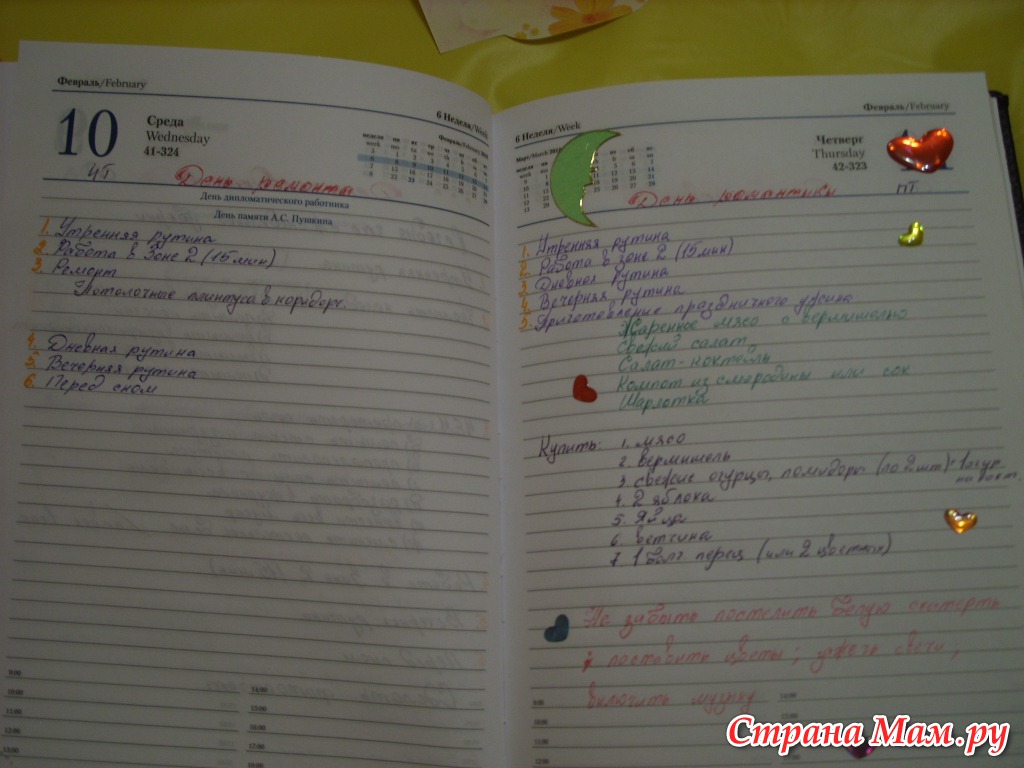 Февраль/February
6 Неделя/Week
10
Среда
Wednesday
41-324
ЧТ
День ремонта
День дипломатического работника
День памяти А.С. Пушкина
1. Утренняя рутина
2. Работа в зоне 2 (15 мин)
3. Ремонт
Потолочные плинтуса в коридоре.
4. Дневная рутина
5. Вечерняя рутина
6. Перед сном
9:00
10:00
11:00
12:00
13:00
14:00
15:00
16:00
17:00
6 Неделя/Week
Февраль/February
Четверг
Thursday
42-323
ПТ
День романтики
1. Утренняя рутина
2. Работа в зоне 2 (15 мин)
3. Дневная рутина
4. Вечерняя рутина
5. Приготовление праздничного ужина
Жаренное мясо с вермишелью
Свежий салат
Салат-коктейль
Компот из смородины или сок
Шарлотка
Купить: 1. мясо
2. вермишель
3. свежие огурцы, помидоры (по 2 шт) + 1 огур.
на кокт.
4. 2 яблока
5. Яйца
6. ветчина
7. 1 болг перец (или 2 цветных)
Не забыть постелить белую скатерть
и поставить цветы; зажечь свечи;
включить музыку
9:00
10:00
11:00
12:00
14:00
Страна Мам.ру